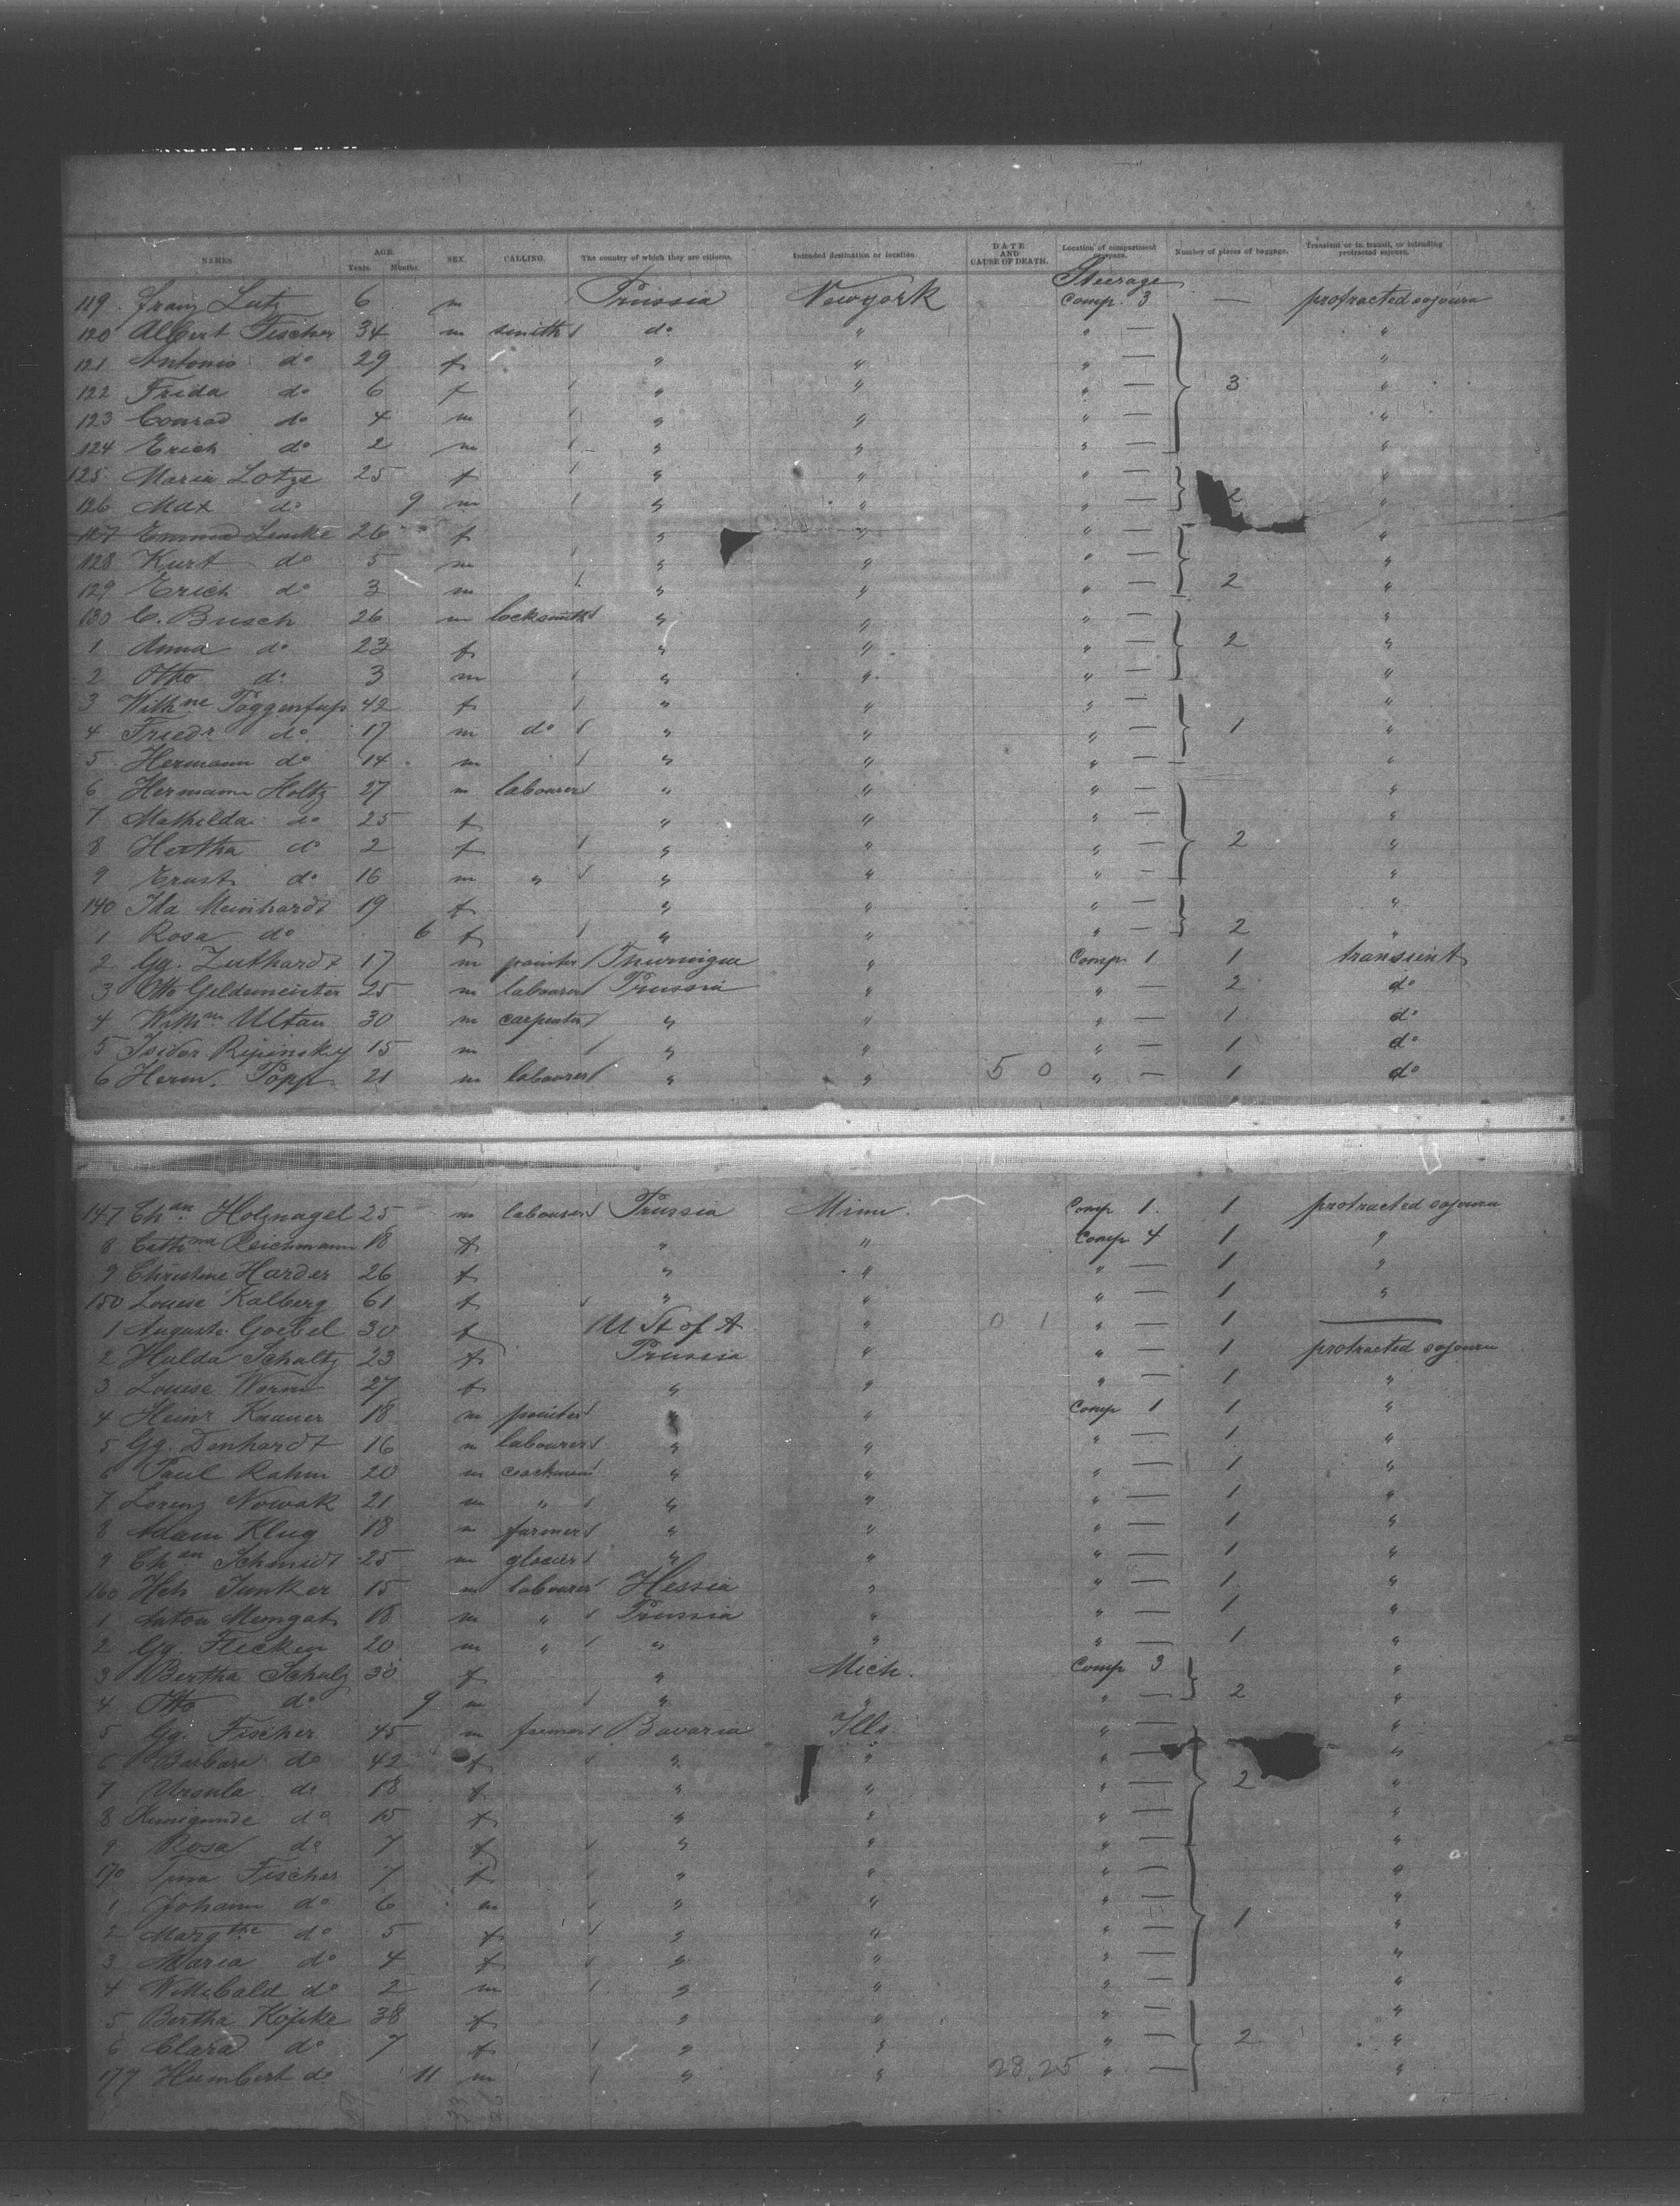 NAMES AGE. Years. Months. SEX. CALLING. The country of which they are citizens. Intended destination or location. DATE AND CAUSE OF DEATH. Location of compartment Number of pieces of baggage. Transient or in transit, or intending protracted sojourn.
Steerage
119 Franz Lutz 6 m Prussia Newyork Comp. 3 — protracted sojourn
120 Albert Fischer 34 m smith do " " — "
121 Antonie do 29 f " " " — "
122 Frida do 6 f " " " — 3 "
123 Conrad do 4 m " " " — "
124 Erich do 2 m " " " — "
125 Maria Lotze 25 f " " " — "
126 Max do 9 m " " " — 2 "
127 Emma Lemke 26 f " " " — "
128 Kurt do 5 m " " " — "
129 Erich do 3 m " " " — 2 "
130 C. Busch 26 m locksmith " " " — "
1 Anna do 23 f " " " — 2 "
2 Otto do 3 m " " " — "
3 Wilhne Poggenfup 42 f " " " — "
4 Friedr do 17 m do " " " — 1 "
5 Hermann do 14 m " " " — "
6 Hermann Holtz 27 m labourer " " " — "
7 Mathilda do 25 f " " " — "
8 Hertha do 2 f " " " — 2 "
9 Ernst do 16 m " " " " — "
140 Ida Meinhardt 19 f " " " — "
1 Rosa do 6 f " " " — 2 "
2 Gg. Luthardt 17 m painter Thuringia " Comp. 1 1 transient
3 Otto Geldemeister 25 m labourer Prussia " " — 2 do
4 Wilhm Ultau 30 m carpenter " " " — 1 do
5 Isidor Ripinsky 15 m " " " — 1 do
6 Herm. Popp 21 m labourer " " 5 0 " — 1 do
147 Chan Holznagel 25 m labourer Prussia Minn. Comp 1. 1 protracted sojourn
8 Cathna Reichmann 18 f " " Comp. 4 1 "
9 Christine Harder 26 f " " " — 1 "
150 Louise Kalberg 61 f " " " — 1 "
1 Auguste Goebel 30 f U St of A " 0 1 " — 1 —
2 Hulda Schultz 23 f Prussia " " — 1 protracted sojourn
3 Louise Worm 27 f " " " — 1 "
4 Heinr Knauer 18 m painter " " Comp 1 1 "
5 Gg. Denhardt 16 m labourer " " " — 1 "
6 Paul Rahm 20 m coachman " " " — 1 "
7 Lorenz Nowak 21 m " " " " — 1 "
8 Adam Klug 18 m farmer " " " — 1 "
9 Chan Schmidt 25 m glacier " " " — 1 "
160 Hch Junker 15 m labourer Hessia " " — 1 "
1 Anton Memgat 18 m " Prussia " " — 1 "
2 Gg. Flecken 20 m " " " " — 1 "
3 Bertha Schulz 30 f " Mich. Comp 3 "
4 Otto do 9 m " " " — 2 "
5 Gg. Fischer 45 m farmer Bavaria Ills. " — "
6 Barbara do 42 f " " " — "
7 Ursula do 18 f " " " — 2 "
8 Kunigunde do 15 f " " " — "
9 Rosa do 7 f " " " — "
170 Tina Fischer 7 f " " " — "
1 Johann do 6 m " " " — "
2 Margthe do 5 f " " " — 1 "
3 Maria do 4 f " " " — "
4 Willibald do 2 m " " " — "
5 Bertha Köpke 38 f " " " — "
6 Clara do 7 f " " " — 2 "
177 Humbert do 11 m " " 28,25 " — "